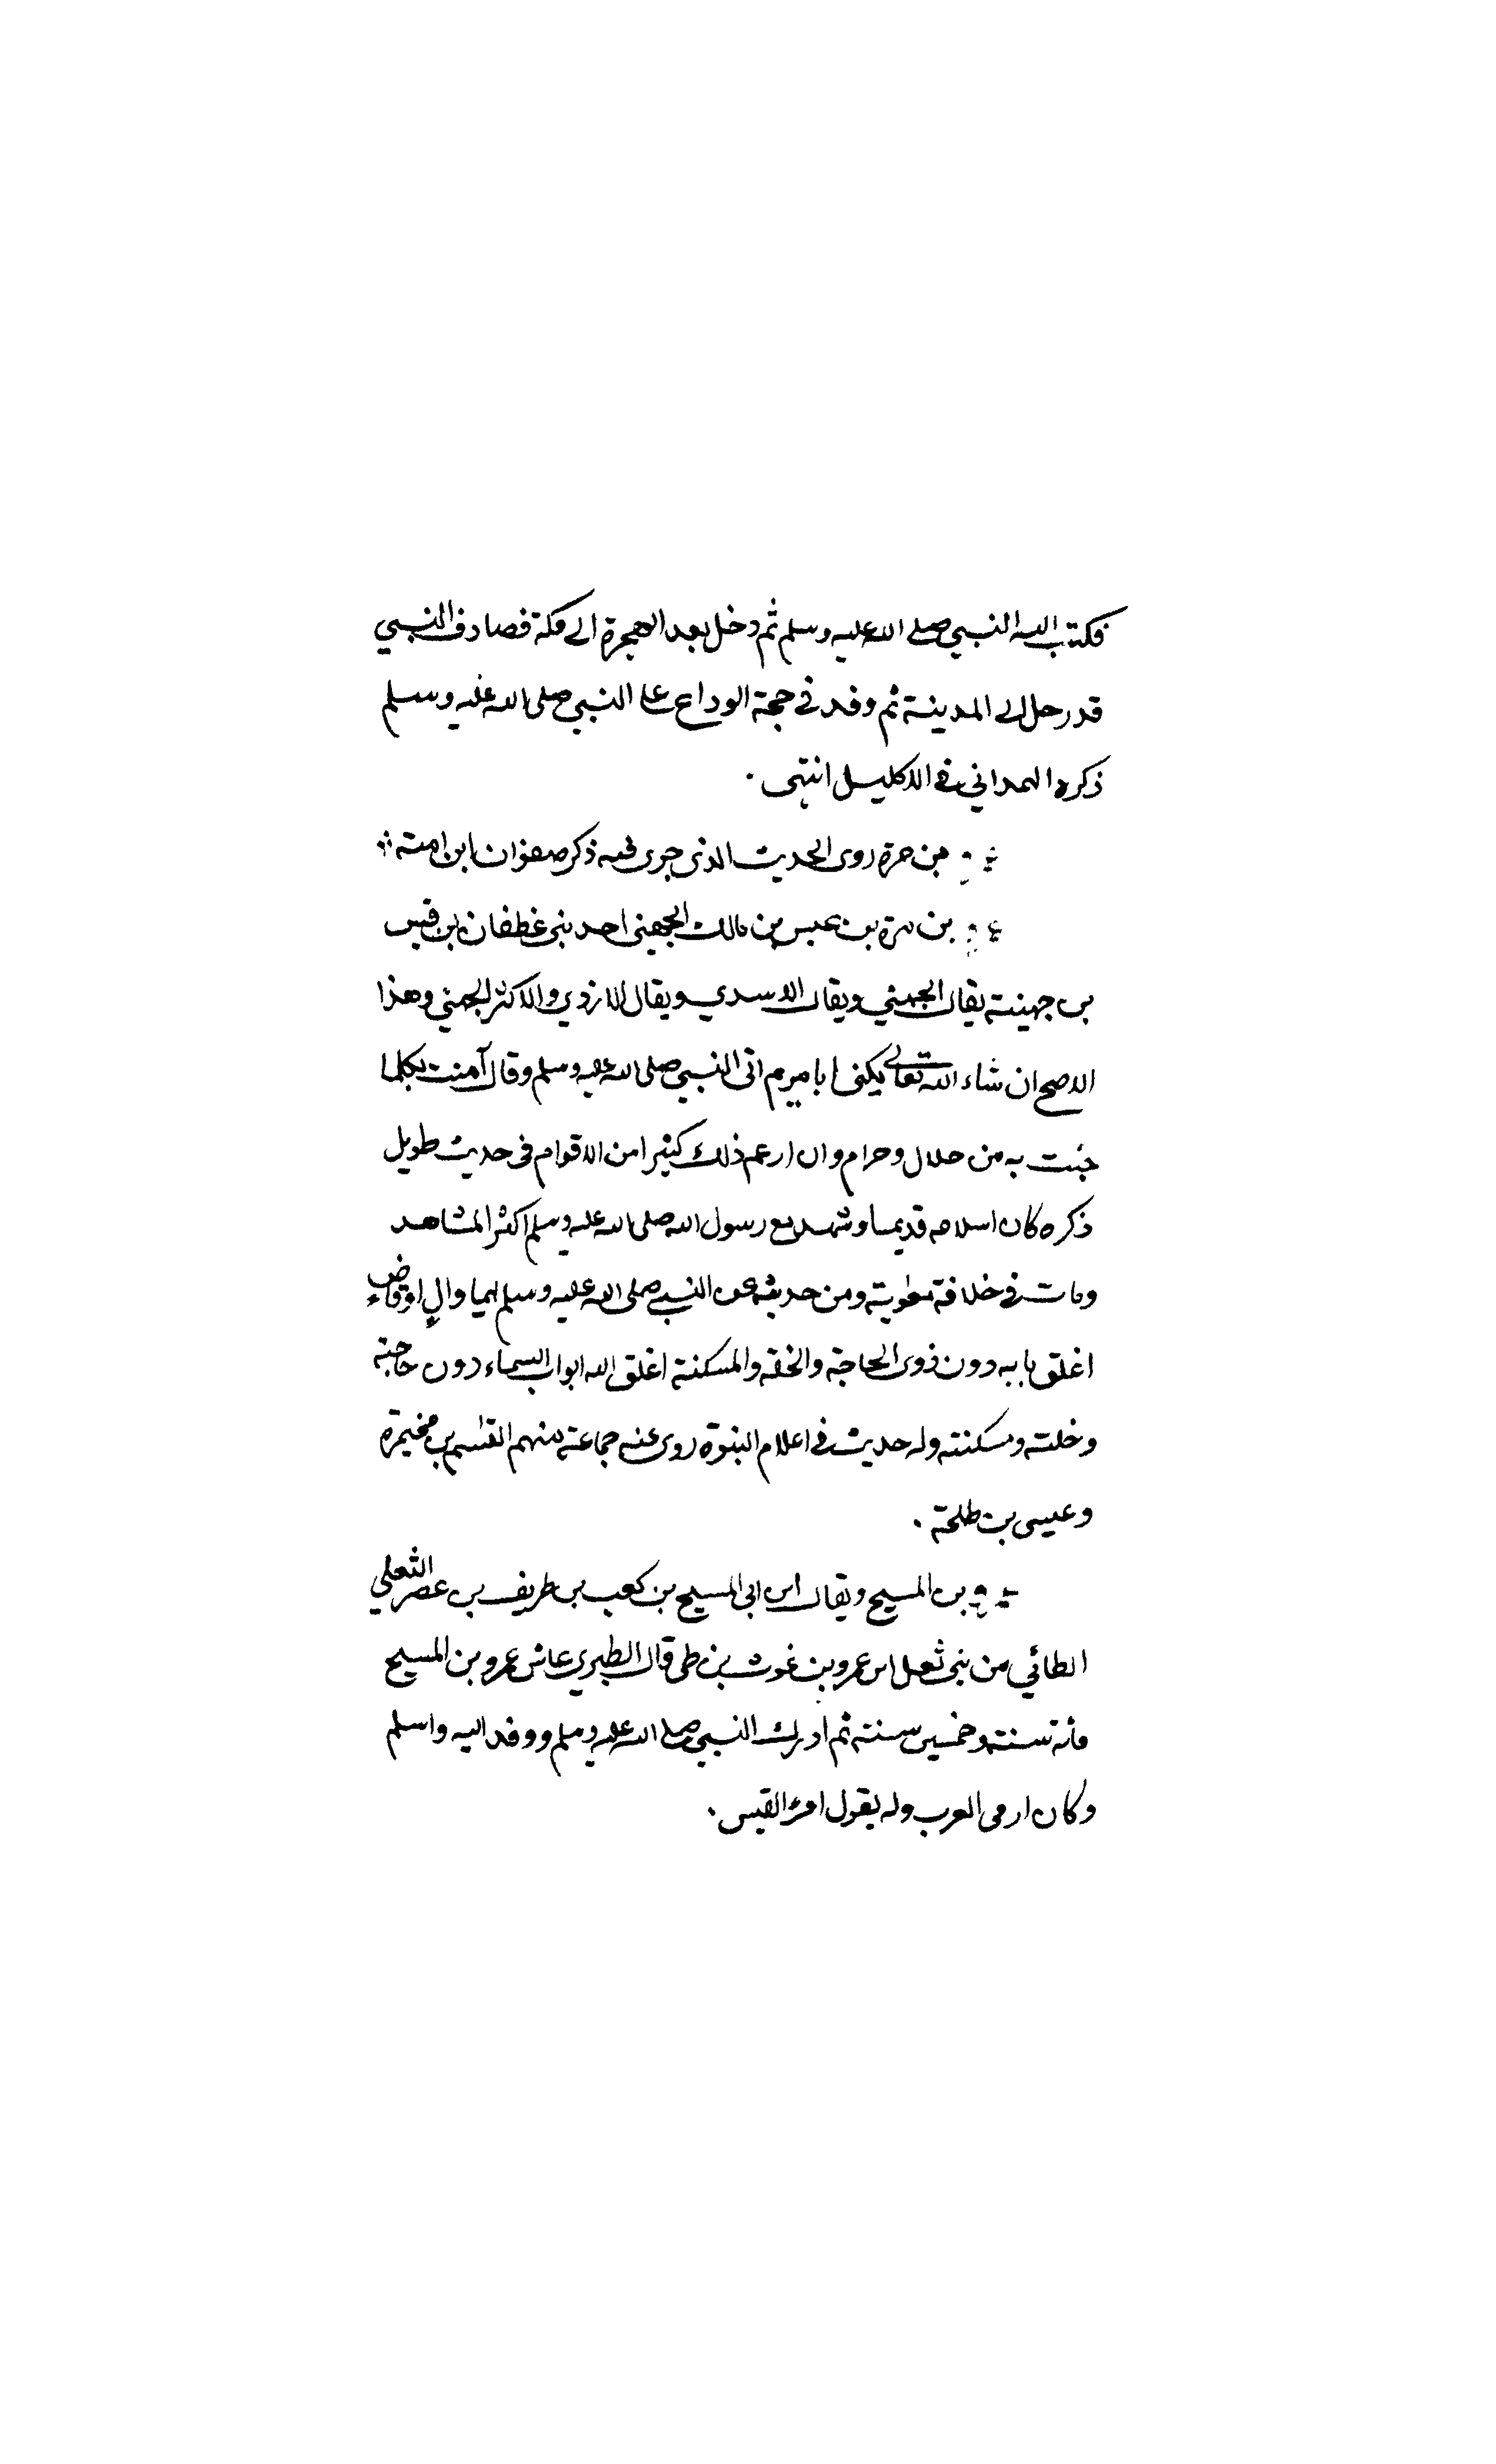 فكتب اليه النبي صلى الله عليه وسلم ثم دخل بعد الهجرة الى مكة فصادف النبي
قد رحل الى المدينة ثم وفد في حجة الوداع على النبي صلى الله عليه وسلم
ذكره الهمداني في الاكليل انتهى .
بن مرة روى الحديث الذى جرى فيه ذكر صفوان ابن امية
بن مرة بن عبس بن مالك الجهني احد بنى غطفان بن قيس
بن جهينة يقال الجهني ويقال الاسدي ويقال الازدي والاكثر الجهني وهذا
الاصح ان شاء الله تعالى يكنى ابا مريم اتى النبي صلى الله عليه وسلم وقال آمنت بكلما
جئت به من حلال وحرام وان ارغم ذلك كثيرا من الاقوام فى حديث طويل
ذكره كان اسلامه قديما وشهد مع رسول الله صلى الله عليه وسلم اكثر المشاهد
ومات في خلافة معوية ومن حديثه عن النبي صلى الله عليه وسلم ايما وال او قاض
اغلق بابه دون ذوى الحاجة والخلة والمسكنة اغلق الله ابواب السماء دون حاجته
وخلته ومسكنته وله حديث في اعلام النبوة روى عنه جماعة منهم القسم بن مخيمرة
وعيسى بن طلحة .
بن المسيح ويقال ابن ابى المسيح بن كعب بن طريف بن عصر الثعلي
الطائي من بنى ثعل ابن عمرو بن غوث بن طي قال الطبري عاش عمرو بن المسيح
مأنة سنة وخمسين سنة ثم ادرك النبي صلى الله عليه وسلم ووفد اليه واسلم
وكان ارمى العرب وله يقول امرئ القيس .